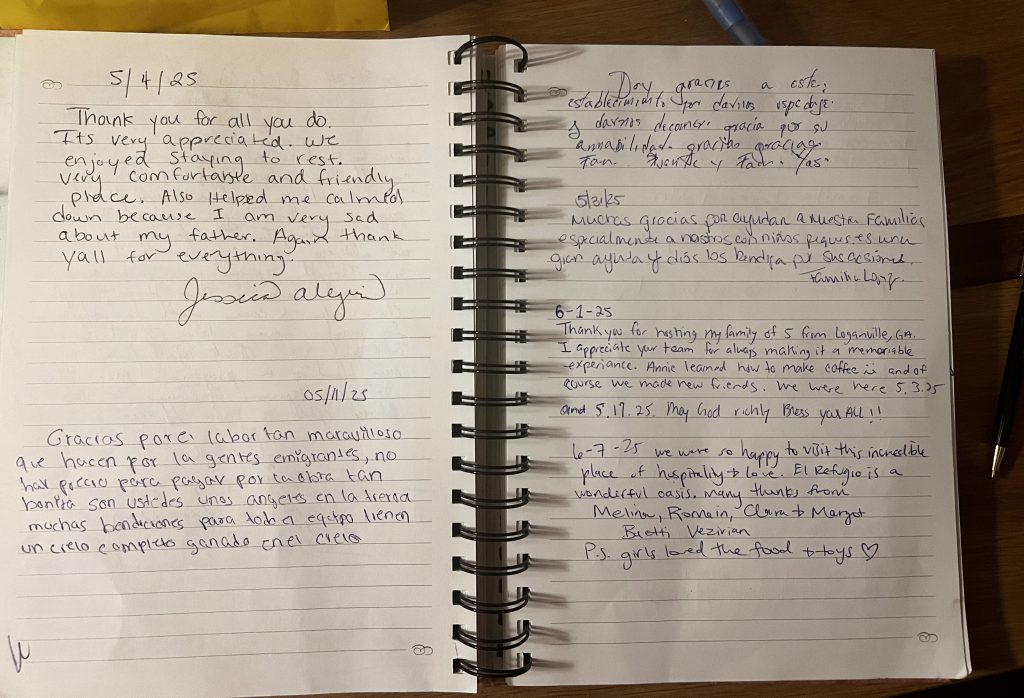 5/4/25
Thank you for all you do.
Its very appreciated. We
enjoyed staying to rest.
very comfortable and friendly
place. Also Helped me calmed
down because I am very sad
about my father. Again thank
yall for everything.
Jessica
05/11/25
Gracias por el labor tan maravilloso
que hacen por la gentes emigrantes, no
hay precio para pagar por la obra tan
bonita son ustedes unos angeles en la tierra
muchas bendiciones para todo el equipo tienen
un cielo completo ganado en el cielo
Doy gracias a este
establecimiento por darnos
y darnos gracia por su
gracias gracias
y
5/31/25
Muchas gracias por ayudar a nuestra Familias
especialmente a nostros con niños es una
gran ayuda y diós los bendiga por sus aciones.
Familia
6-1-25
Thank you for hosting my family of 5 from Loganville, GA.
I appreciate your team for always making it a memorable
experiance. Annie learned how to make coffee and of
course we made new friends. We were here 5.3.25
and 5.17.25. May God richly Bless you ALL!!
6-7-25 we were so happy to visit this incredible
place of hospitality + love. El Refugio is a
wonderful oasis. Many thanks from
Melina, Romain, Clara + Margot
Buetti Vezirian
P.S. girls loved the food + toys ♡